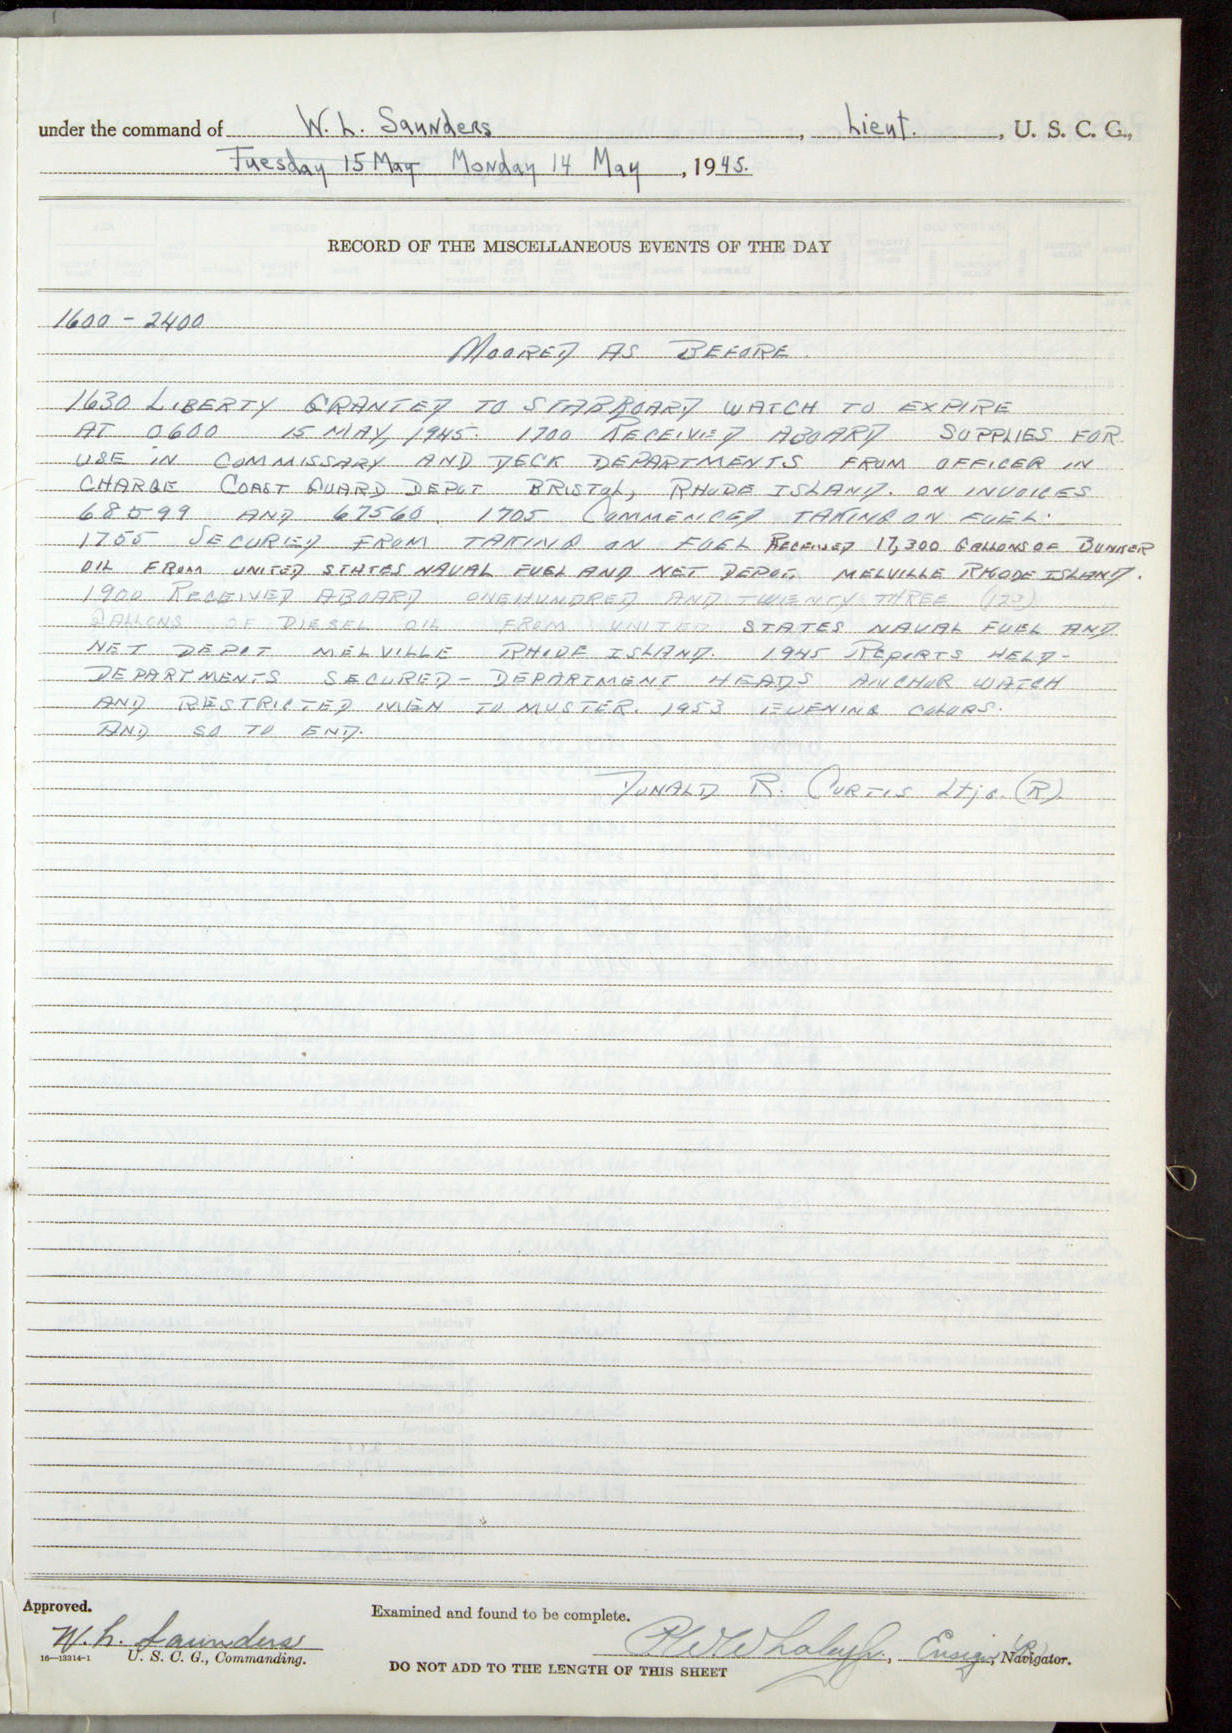 under the command of W. L. Saunders, Lieut., U. S. C. G.,
Tuesday 15 May Monday 14 May, 1945.
RECORD OF THE MISCELLANEOUS EVENTS OF THE DAY
1600 - 2400
MOORED AS BEFORE.
1630 LIBERTY GRANTED TO STARBOARD WATCH TO EXPIRE
AT 0600 15 MAY, 1945. 1700 RECEIVED ABOARD SUPPLIES FOR
USE IN COMMISSARY AND DECK DEPARTMENTS FROM OFFICER IN
CHARGE COAST GUARD DEPOT BRISTOL, RHODE ISLAND. ON INVOICES
68599 AND 67560. 1705 COMMENCED TAKING ON FUEL.
1755 SECURED FROM TAKING ON FUEL RECEIVED 17,300 GALLONS OF BUNKER
OIL FROM UNITED STATES NAVAL FUEL AND NET DEPOT, MELVILLE RHODE ISLAND.
1900 RECEIVED ABOARD ONEHUNDRED AND TWENTY THREE (123)
GALLONS OF DIESEL OIL FROM UNITED STATES NAVAL FUEL AND
NET DEPOT MELVILLE RHODE ISLAND. 1945 REPORTS HELD-
DEPARTMENTS SECURED- DEPARTMENT HEADS ANCHOR WATCH
AND RESTRICTED MEN TO MUSTER. 1953 EVENING COLORS.
AND SO TO END.
DONALD R. CURTIS Ltjg. (R)
Approved.
Examined and found to be complete.
W. L. Saunders
U. S. C. G., Commanding.
Ensign (R), Navigator.
16—13314-1
DO NOT ADD TO THE LENGTH OF THIS SHEET